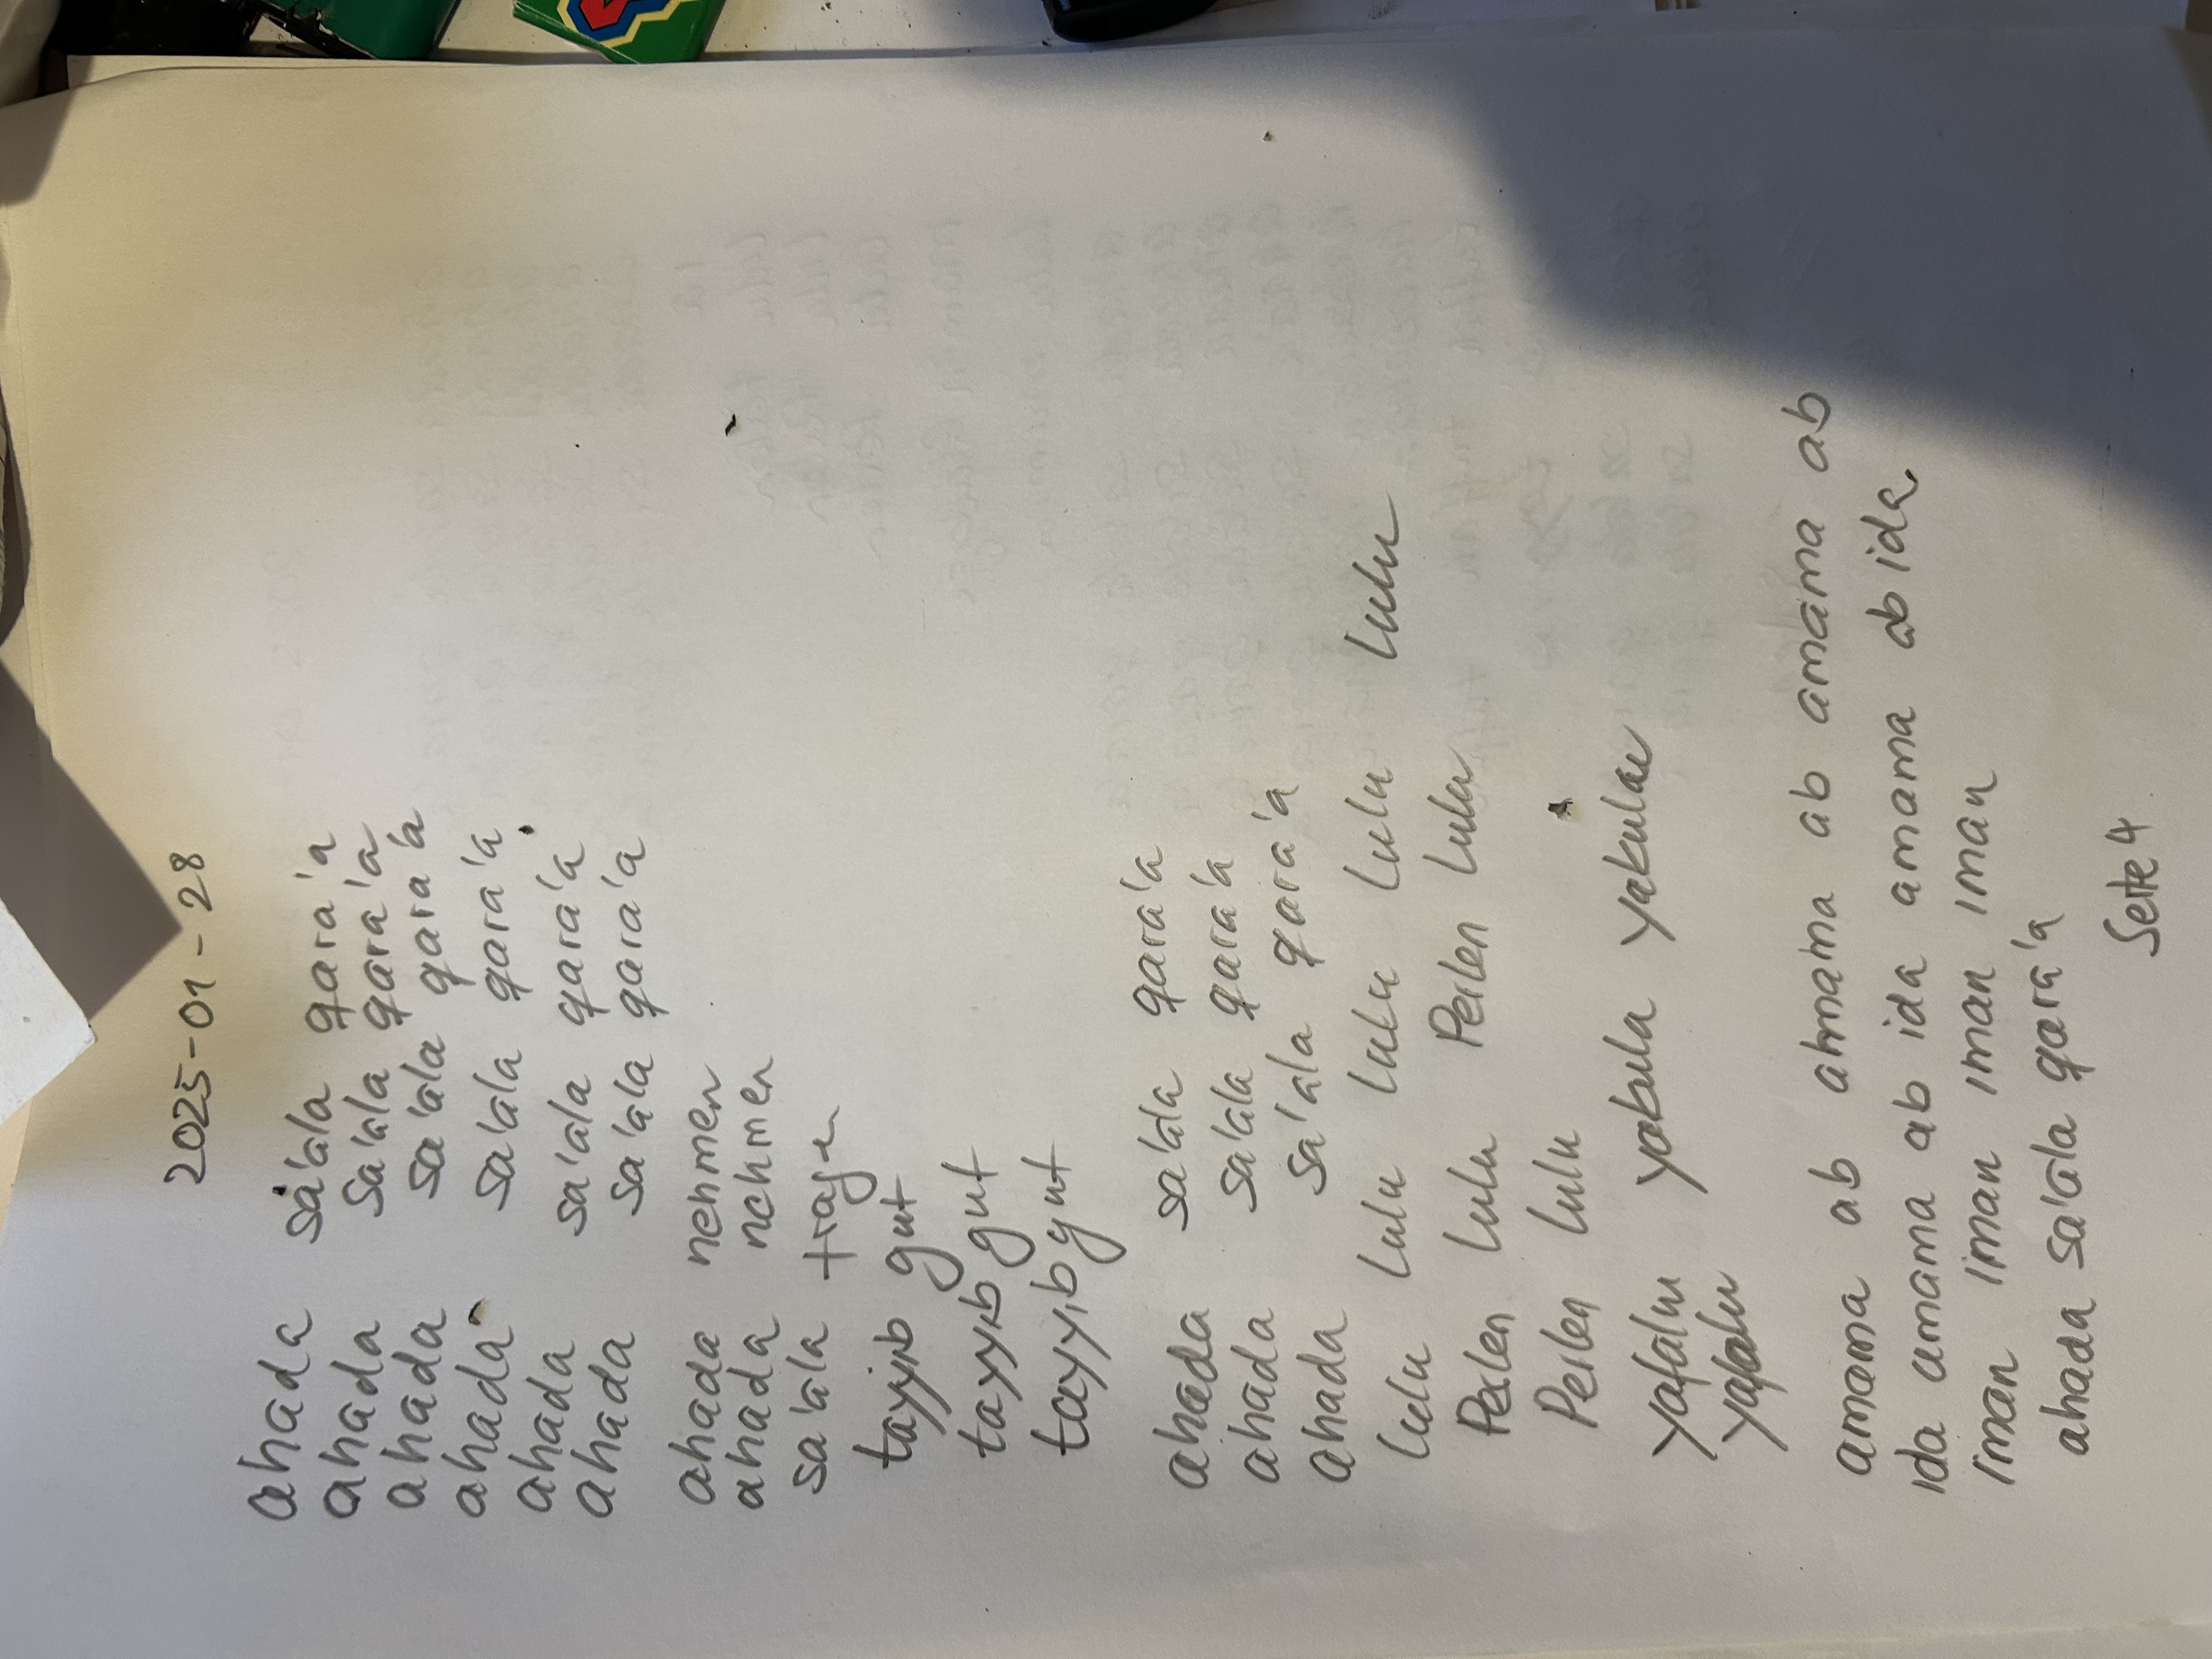 2025-01-28
ahada sa'ala qara'a
ahada sa'ala qara'a
ahada sa'ala qara'a
ahada sa'ala qara'a
ahada sa'ala qara'a
ahada sa'ala qara'a
ahada nehmen
ahada nehmen
sa'ala fragen
tayyib gut
tayyib gut
tayyib gut
ahada sa'ala qara'a
ahada sa'ala qara'a
ahada sa'ala qara'a
lulu lulu lulu lulu lulu
Perlen lulu Perlen lulu
Perlen lulu
yafalu yakula
yafalu
amama ab amama ab amama ab
ida amama ab ida amama ab ida
iman iman iman iman
ahada sa'ala qara'a
Seite 4